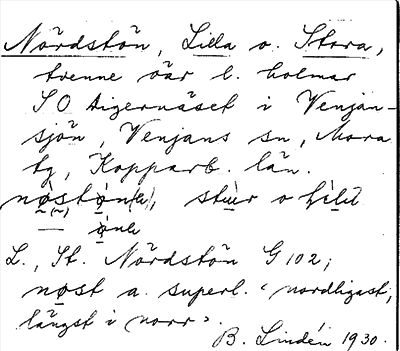 Nördstön, Lilla o. Stora,
tvenne öar l. holmar
SO Digernäset i Venjan-
sjön, Venjans sn, Mora
tg, Kopparb. län.
L., St. Nördstön G 102;
nøst a. superl. ‘nordligast,
längst i norr’.
B. Lindén 1930.